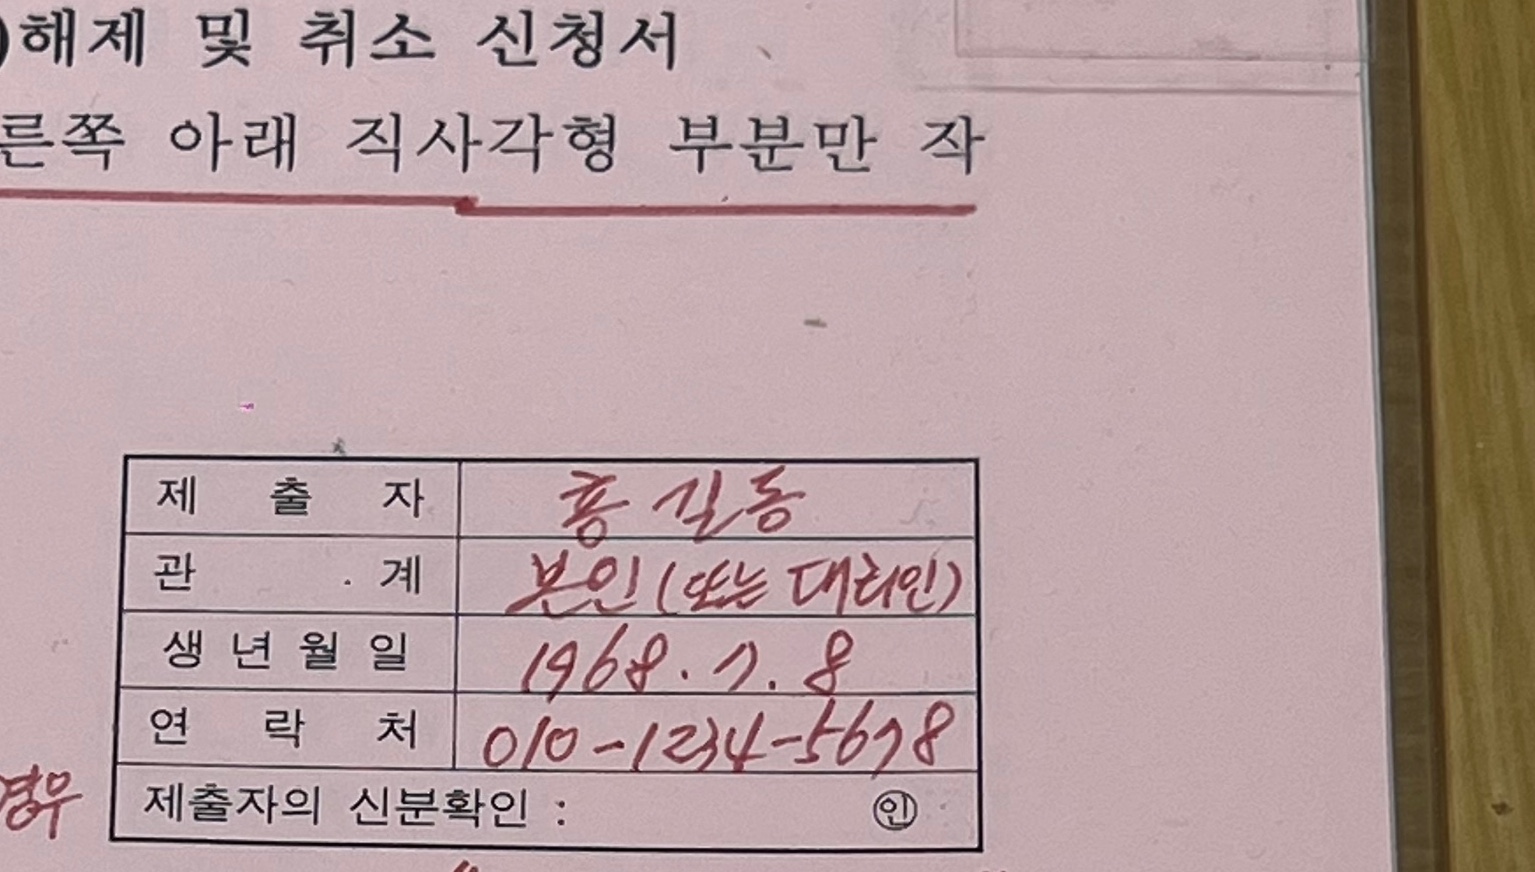 )해제 및 취소 신청서
른쪽 아래 직사각형 부분만 작
제 출 자 홍길동
관 계 본인(또는 대리인)
생 년 월 일 1968. 7. 8
연 락 처 010-1234-5678
경우
제출자의 신분확인 : ㊞